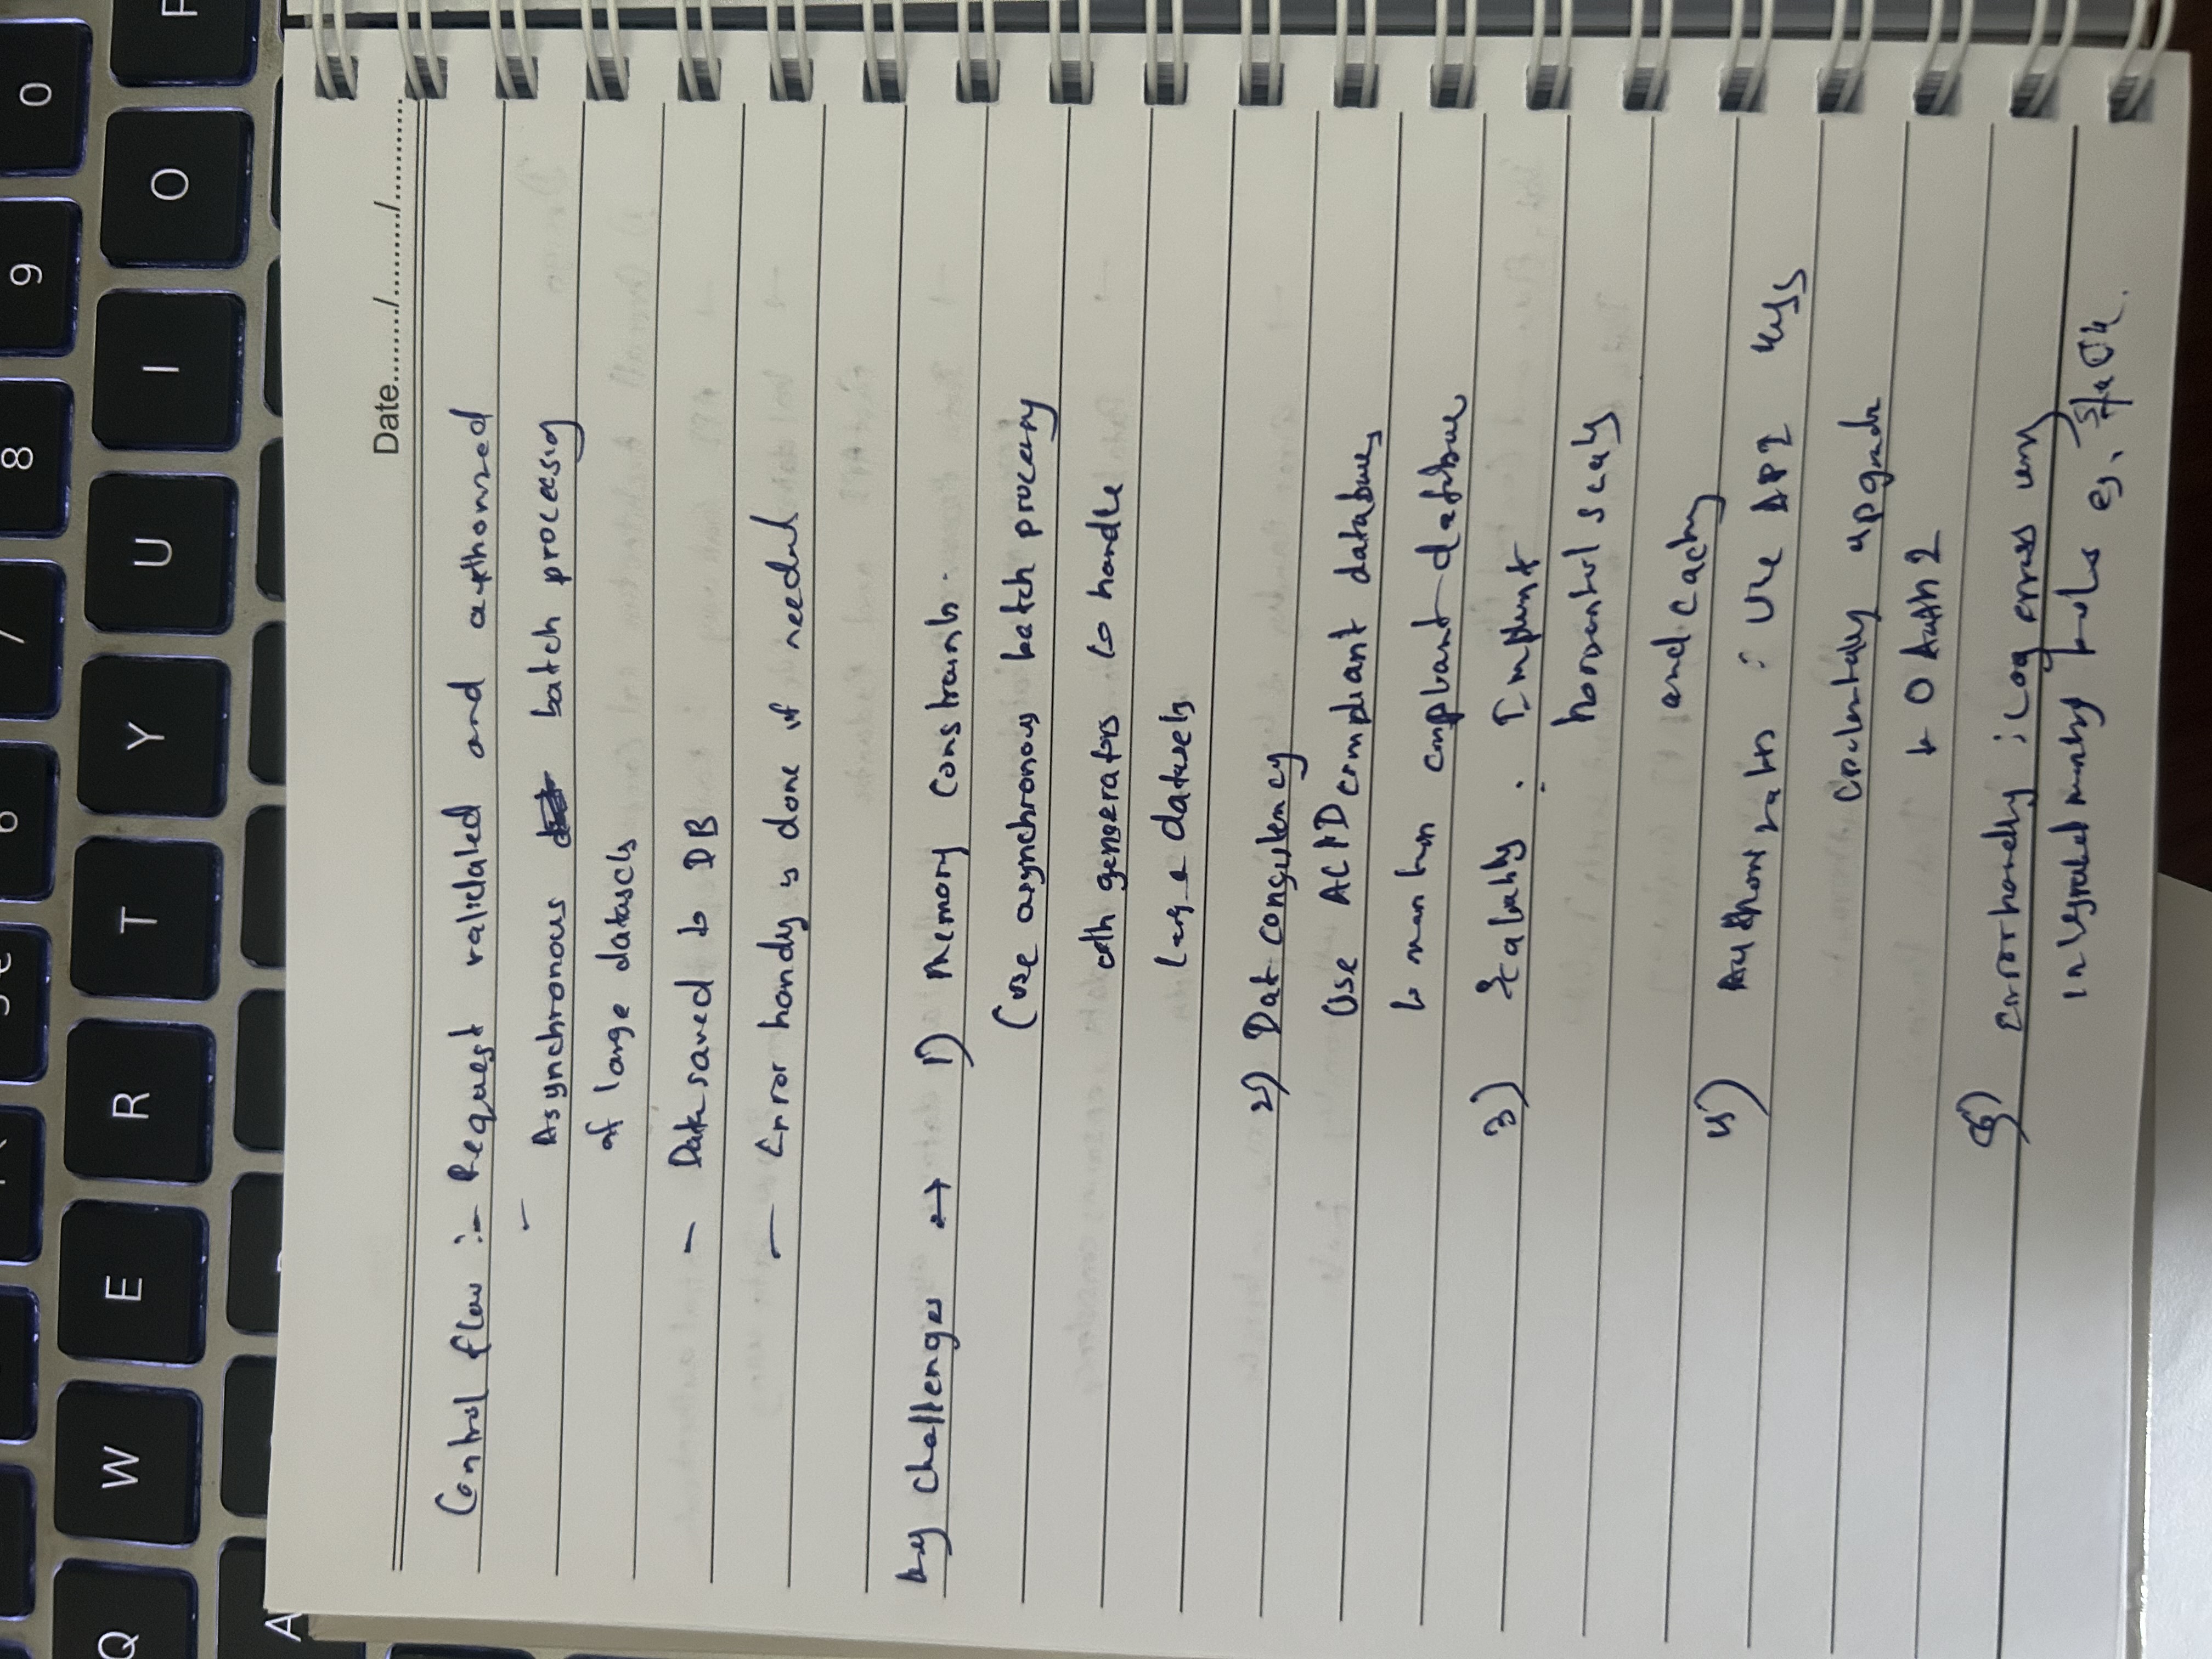 6 7 8 9 0
Q W E R T Y U I O P
A
Date......../........./...........
Control flow :- Request validated and authorized
- Asynchronous batch processig
of large datasets
- Data saved to DB
- Error handlg is done if needed
key challenges → 1) Memory constraints.
(use asynchronous batch processg
with generators to handle
large datasets
2) Data consistency
Use ACID compliant databases
to maintain compliant database
3) Scalability : Implement
horizontal scalg
and cachg
4) Authorization : Use API keys
upgrade
to OAuth2
5) Error handlg : Log errors using
integrated tools eg.